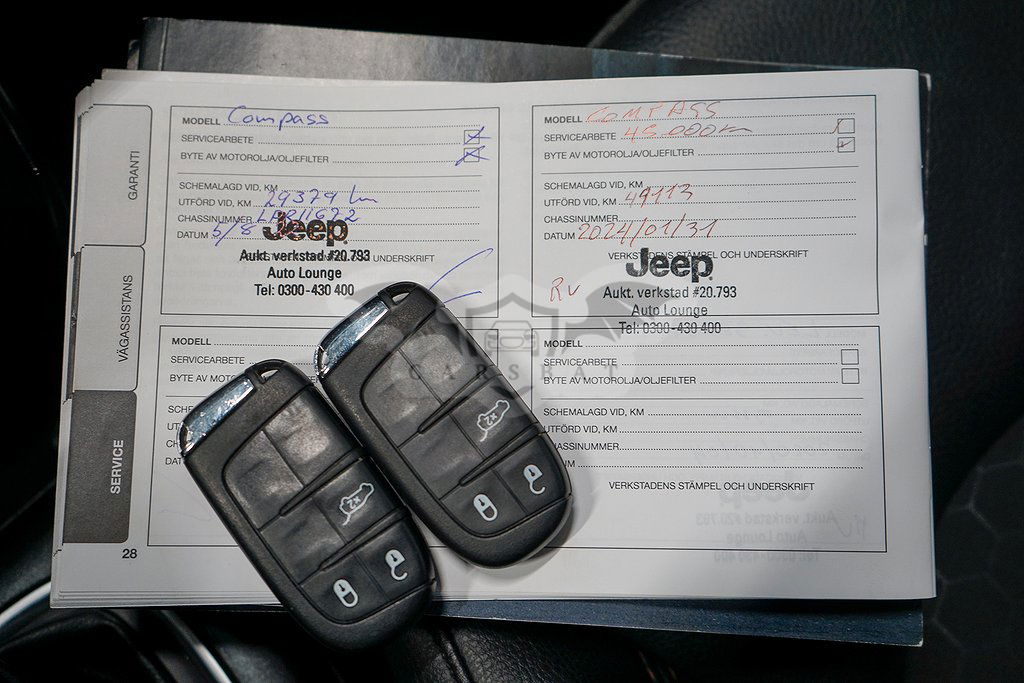 GARANTI
VÄGASSISTANS
SERVICE
28
MODELL Compass
SERVICEARBETE
BYTE AV MOTOROLJA/OLJEFILTER
SCHEMALAGD VID, KM
UTFÖRD VID, KM 29379 km
CHASSINUMMER
DATUM 5/8
Jeep
Aukt. verkstad #20.793
Auto Lounge
Tel: 0300-430 400
UNDERSKRIFT
MODELL COMPASS
SERVICEARBETE 45.000km
BYTE AV MOTOROLJA/OLJEFILTER
SCHEMALAGD VID, KM
UTFÖRD VID, KM 49113
CHASSINUMMER
DATUM 2024/01/31
VERKSTADENS STÄMPEL OCH UNDERSKRIFT
Jeep
RV
Aukt. verkstad #20.793
Auto Lounge
Tel: 0300-430 400
MODELL
SERVICEARBETE
BYTE AV MOTOROLJA/OLJEFILTER
SCHE
UT
CH
DAT
MODELL
SERVICEARBETE
BYTE AV MOTOROLJA/OLJEFILTER
SCHEMALAGD VID, KM
UTFÖRD VID, KM
HASSINUMMER
UM
VERKSTADENS STÄMPEL OCH UNDERSKRIFT
x2
x2